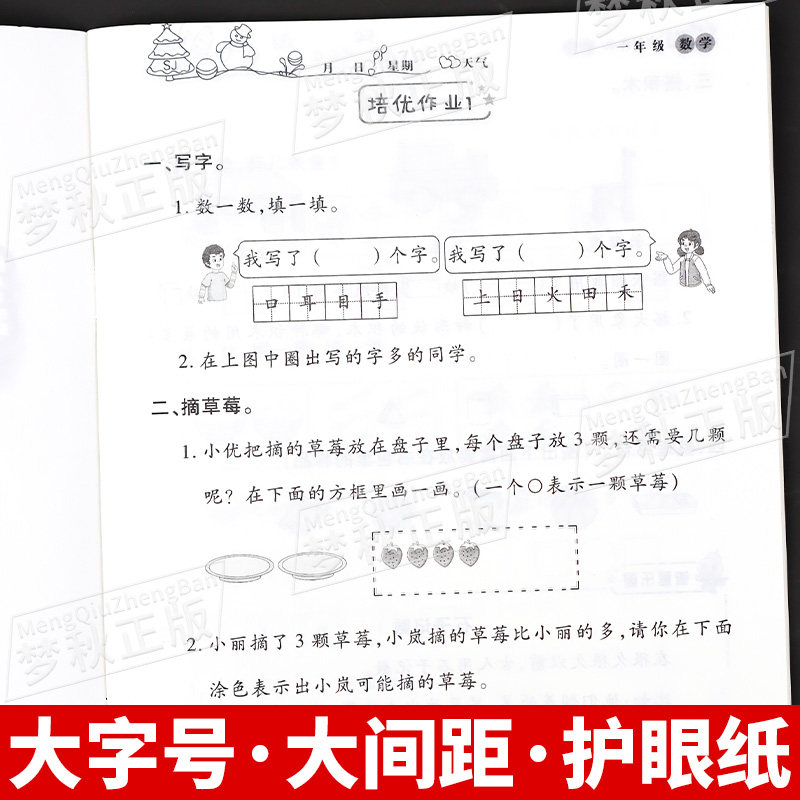 SJ 月 日 星期 天气 一年级 数学
培优作业1
一、写字。
1. 数一数,填一填。
我写了( )个字。 我写了( )个字。
口 耳 目 手 上 日 火 田 禾
2. 在上图中圈出写的字多的同学。
二、摘草莓。
1. 小优把摘的草莓放在盘子里,每个盘子放3颗,还需要几颗
呢?在下面的方框里画一画。(一个○表示一颗草莓)
2. 小丽摘了3颗草莓,小岚摘的草莓比小丽的多,请你在下面
涂色表示出小岚可能摘的草莓。
大字号·大间距·护眼纸
MengQiuZhengBan
梦秋正版
MengQiuZhengBan
梦秋正版
MengQiuZhengBan
梦秋正版
MengQiuZhengBan
梦秋正版
MengQiuZhengBan
梦秋正版
MengQiuZhengBan
梦秋正版